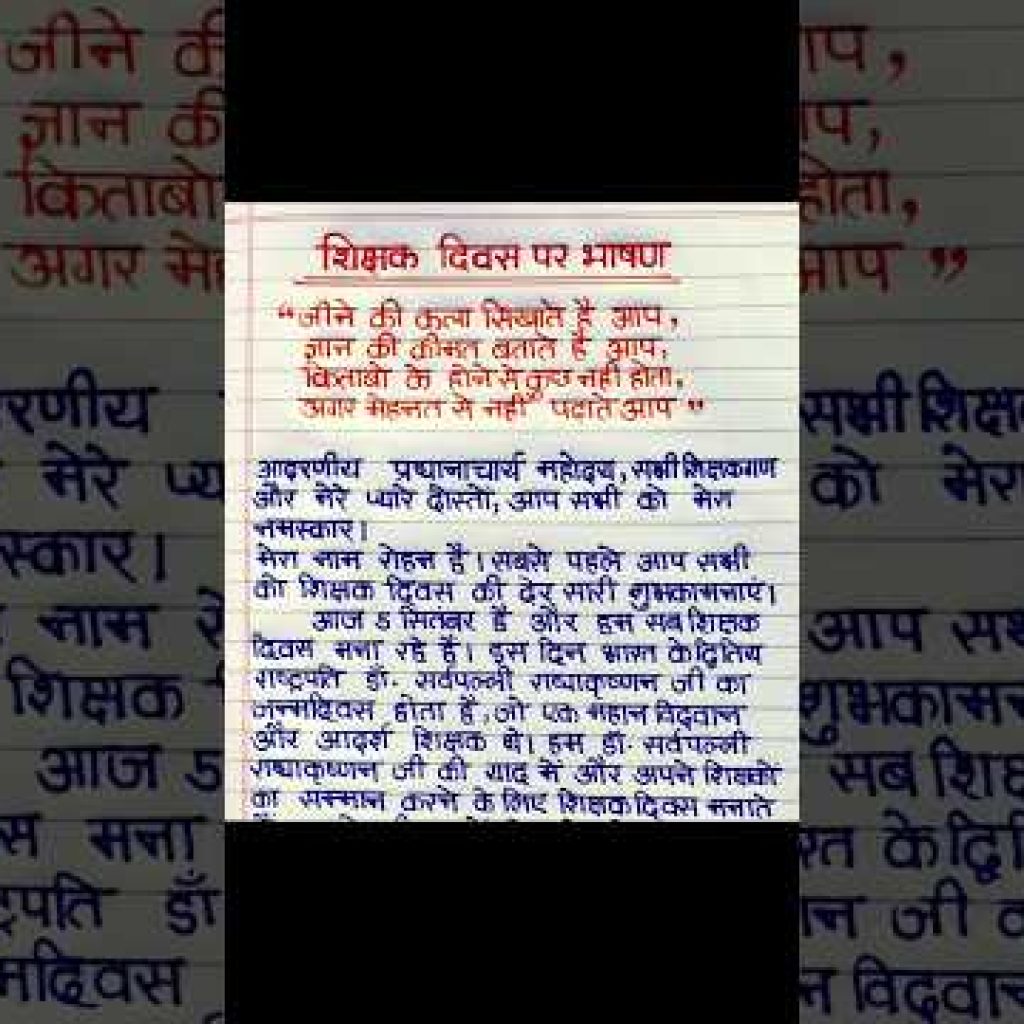 शिक्षक दिवस पर भाषण
“जीने की कला सिखाते है आप,
ज्ञान की कीमत बताते है आप,
किताबो के होने से कुछ नही होता,
अगर मेहनत से नही पढाते आप”
आदरणीय प्रधानाचार्य महोदय, सभी शिक्षकगण
और मेरे प्यारे दोस्तो, आप सभी को मेरा
नमस्कार।
मेरा नाम रोहन है। सबसे पहले आप सभी
को शिक्षक दिवस की ढेर सारी शुभकामनाएं।
आज 5 सितंबर है और हम सब शिक्षक
दिवस मना रहे है। इस दिन भारत के द्वितिय
राष्ट्रपति डॉ. सर्वपल्ली राधाकृष्णन जी का
जन्मदिवस होता है, जो एक महान विद्वान
और आदर्श शिक्षक थे। हम डॉ. सर्वपल्ली
राधाकृष्णन जी की याद मे और अपने शिक्षको
का सम्मान करने के लिए शिक्षक दिवस मनाते